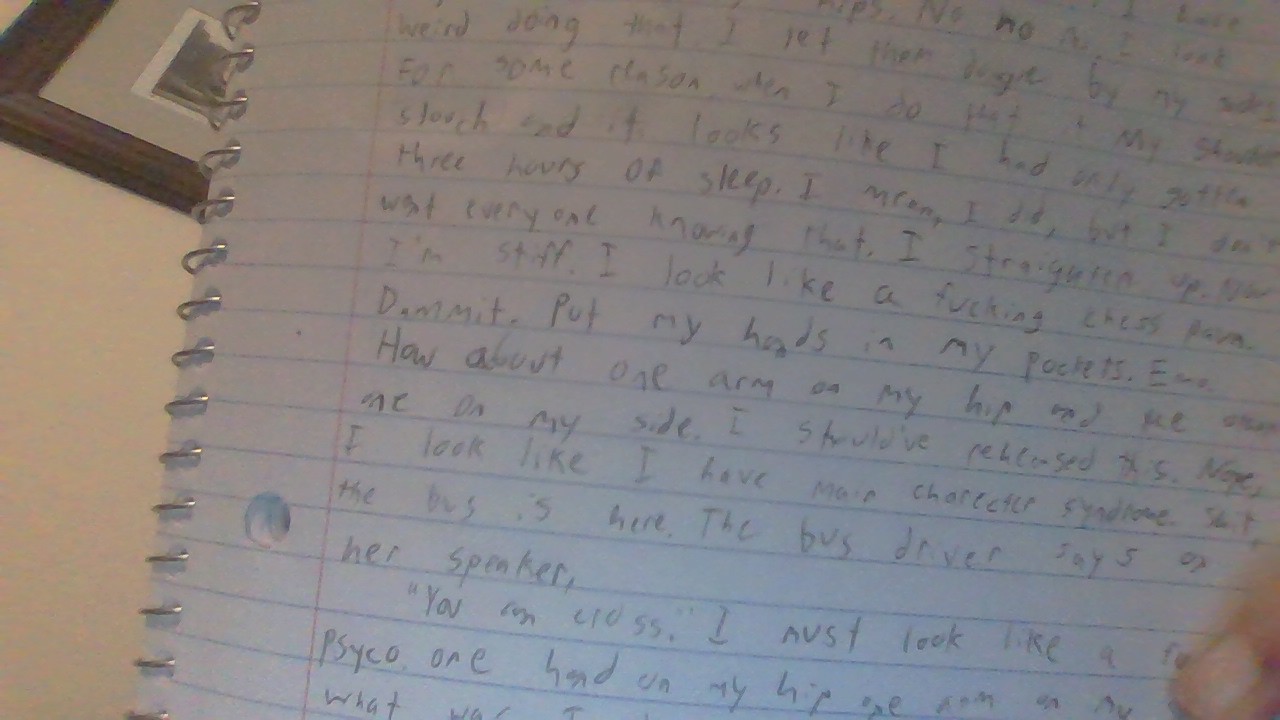 hips. No no no. I look
weird doing that. I let them dangle by my sides
For some reason when I do that my
slouch and it looks like I had only gotten
three hours of sleep. I mean, I did, but I don't
want everyone knowing that. I straighten up. Now
I'm stiff. I look like a fucking chess pawn.
Dammit. Put my hands in my pockets. Emo.
How about one arm on my hip and the other
one on my side. I should've rehearsed this. Nope,
I look like I have main charecter syndrome. Shit,
the bus is here. The bus driver says on
her speaker,
"You can cross." I must look like a
psyco. one hand on my hip one arm on my
what was I